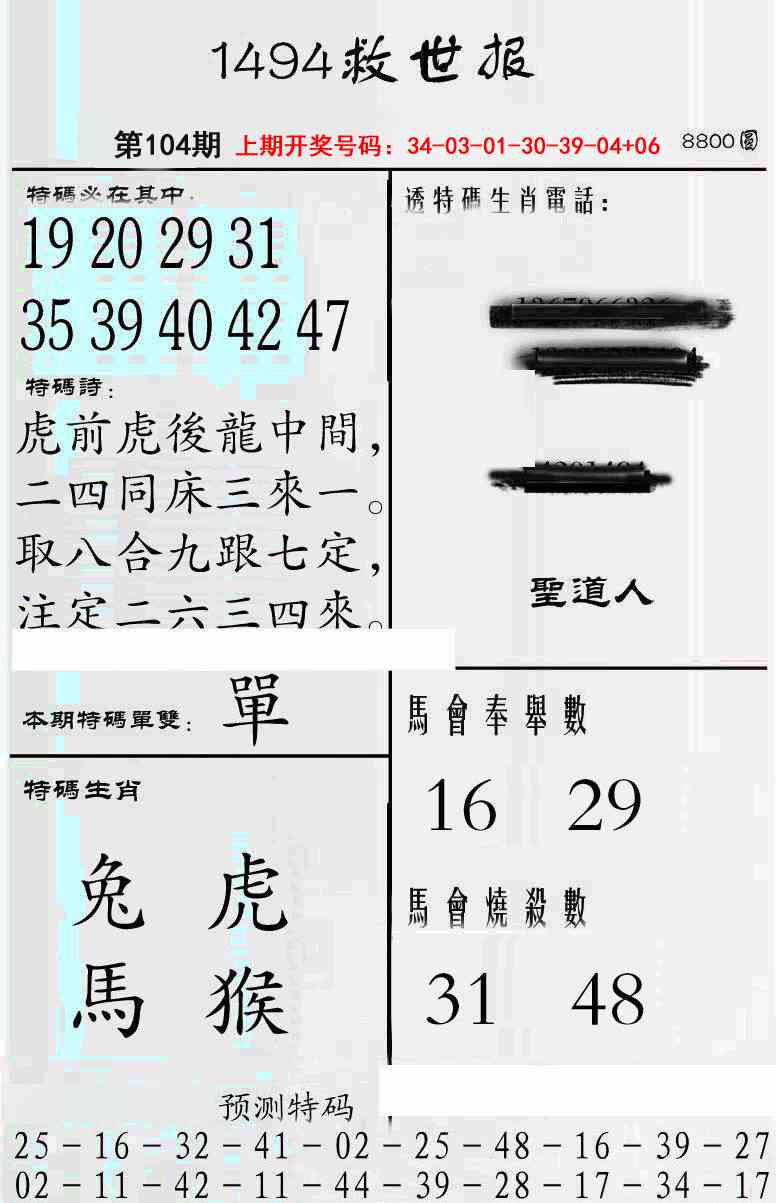 1494救世报
第104期 上期开奖号码：34-03-01-30-39-04+06 8800圓
特碼必在其中：
19 20 29 31
35 39 40 42 47
特碼詩：
虎前虎後龍中間，
二四同床三來一。
取八合九跟七定，
注定二六三四來。
本期特碼單雙： 單
特碼生肖
兔 虎
馬 猴
透特碼生肖電話：
聖道人
馬會奉舉數
16 29
馬會燒殺數
31 48
预测特码
25－16－32－41－02－25－48－16－39－27
02－11－42－11－44－39－28－17－34－17